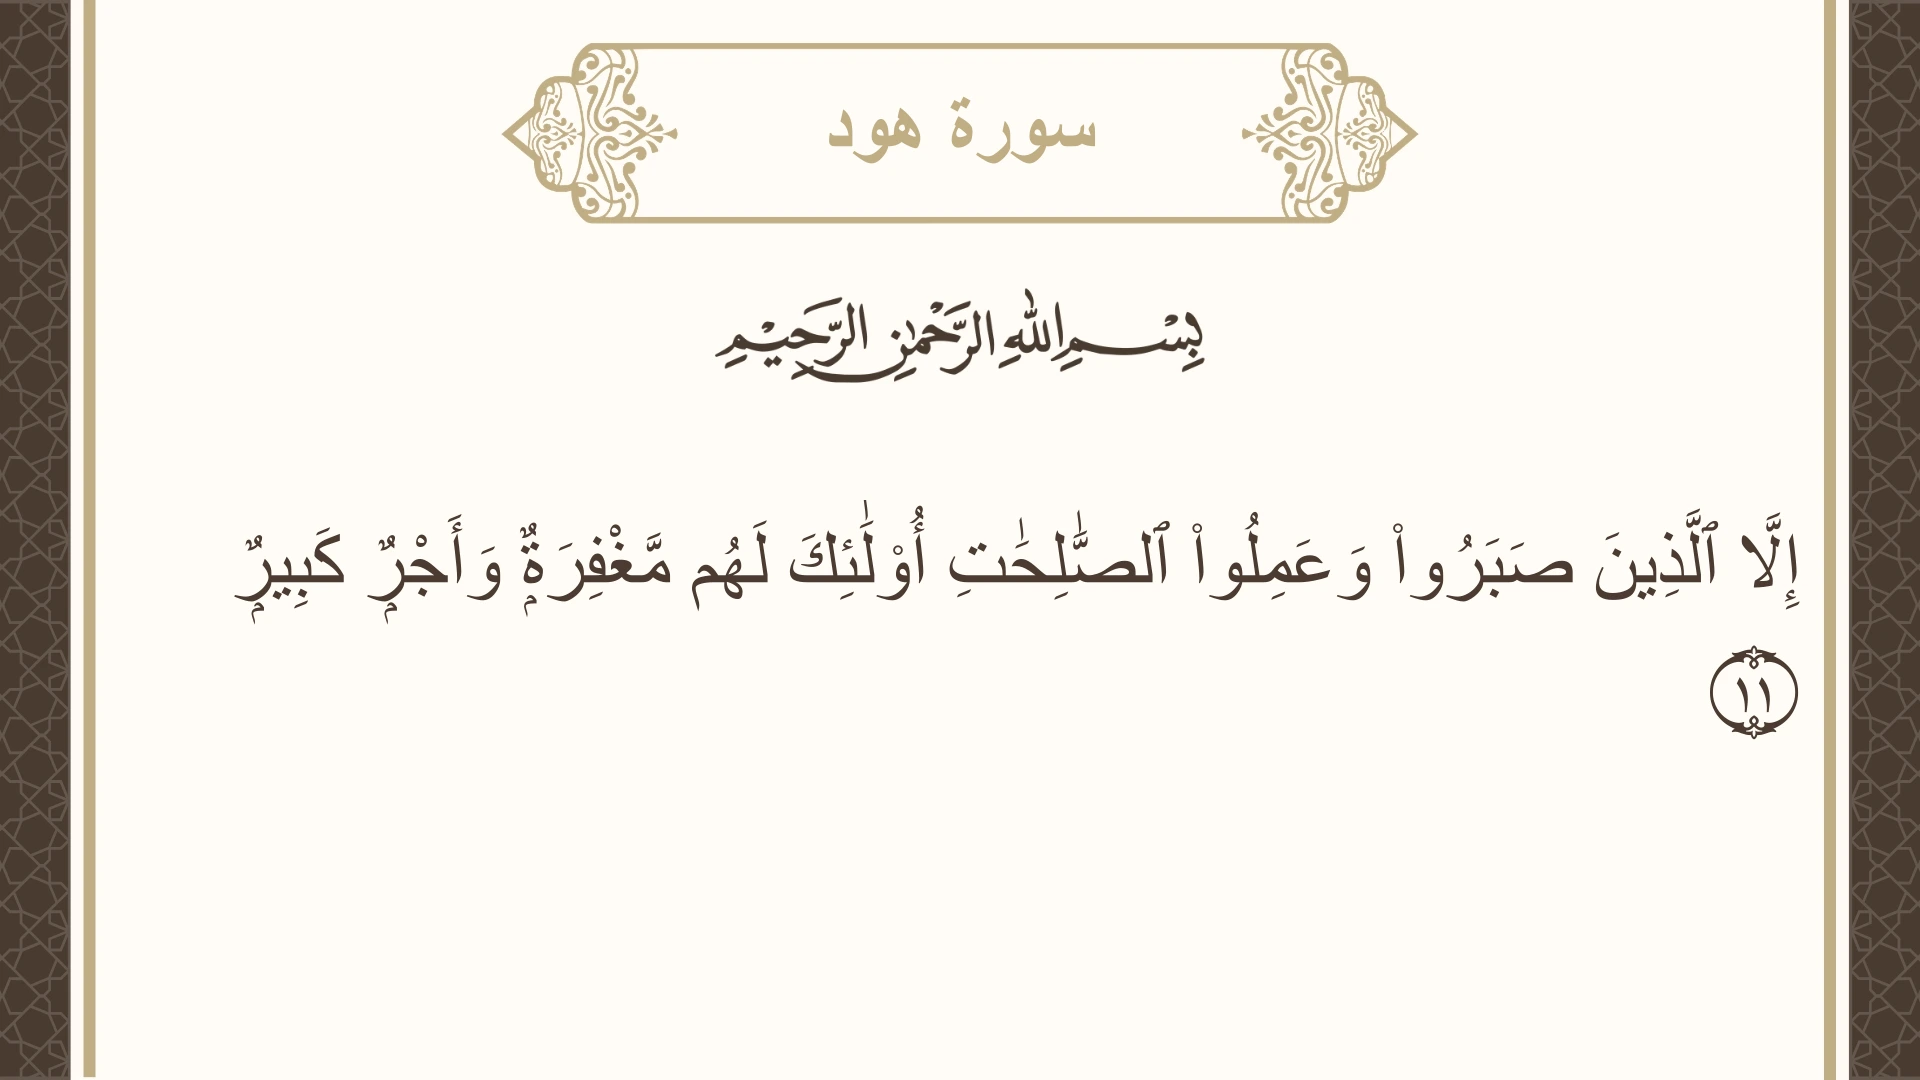 سورة هود
بِسْمِ اللهِ الرَّحْمٰنِ الرَّحِيْمِ
إِلَّا ٱلَّذِينَ صَبَرُوا۟ وَعَمِلُوا۟ ٱلصَّٰلِحَٰتِ أُو۟لَٰٓئِكَ لَهُم مَّغْفِرَةٌۭ وَأَجْرٌۭ كَبِيرٌۭ
١١